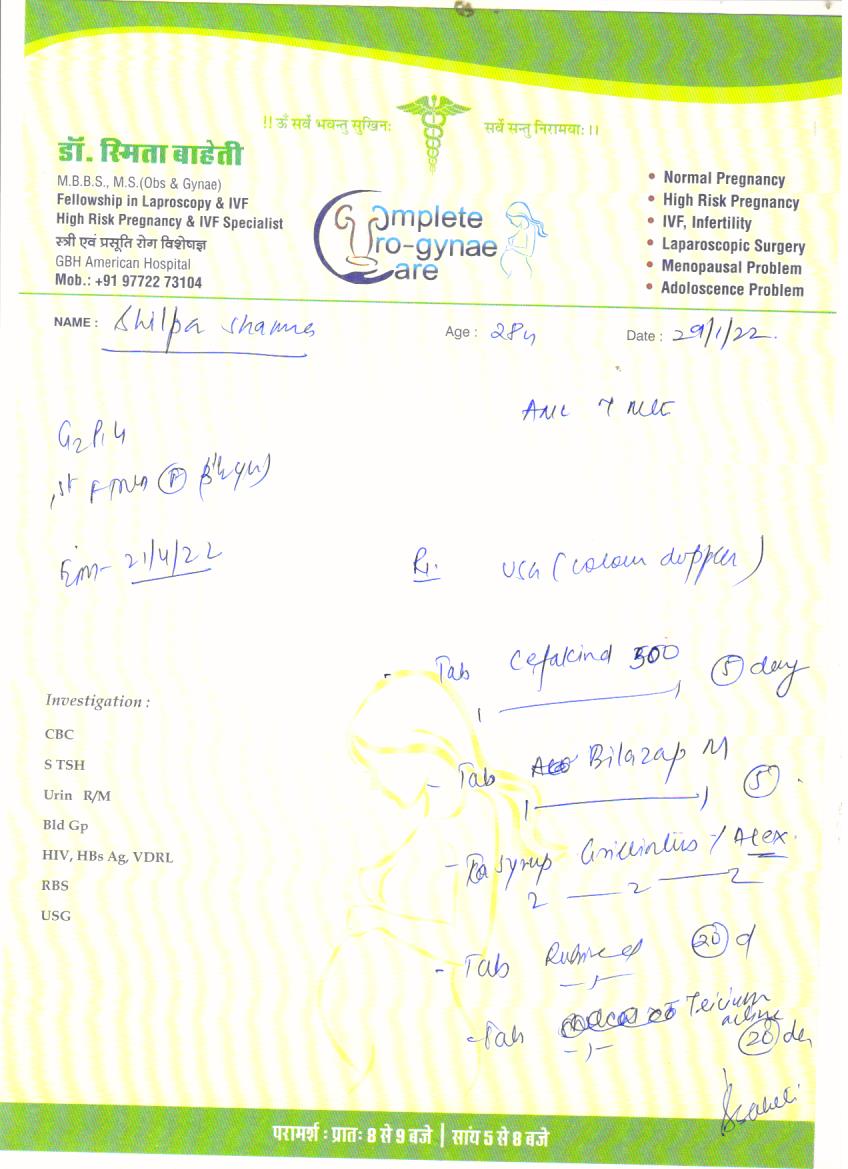 !! ॐ सर्वे भवन्तु सुखिनः सर्वे सन्तु निरामयाः ।।
डॉ. स्मिता बाहेती
M.B.B.S., M.S.(Obs & Gynae)
Fellowship in Laproscopy & IVF
High Risk Pregnancy & IVF Specialist
स्त्री एवं प्रसूति रोग विशेषज्ञ
GBH American Hospital
Mob.: +91 97722 73104
Complete
Uro-gynae
Care
• Normal Pregnancy
• High Risk Pregnancy
• IVF, Infertility
• Laparoscopic Surgery
• Menopausal Problem
• Adoloscence Problem
NAME : Shilpa Sharma Age : 28y Date : 29/1/22.
21/4/22
USG (colour doppler)
- Tab Cefakind 500 5 day
1 1
- Tab Bilazap M 5
1 1
- Syrup / Alex.
2 2 2
- Tab 20 d
- Tab 20 da
Investigation :
CBC
S TSH
Urin R/M
Bld Gp
HIV, HBs Ag, VDRL
RBS
USG
परामर्श : प्रातः 8 से 9 बजे | सांय 5 से 8 बजे